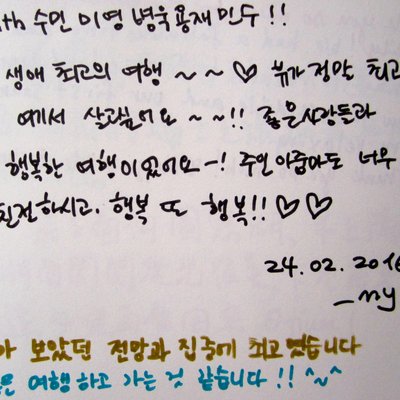 th 수민 미영 병욱 용재 민수 !!
생애 최고의 여행 ~ ~ ♡ 뷰가 정말 최고
여기서 살고싶어요 ~ ~!! 좋은사람들과
행복한 여행이었어요~! 주인아줌마도 너무
친절하시고. 행복 또 행복!! ♡♡
24. 02. 2016
_my
아 보았던 전망과 집중에 최고였습니다
은 여행하고 가는 것 같습니다 !! ^~^